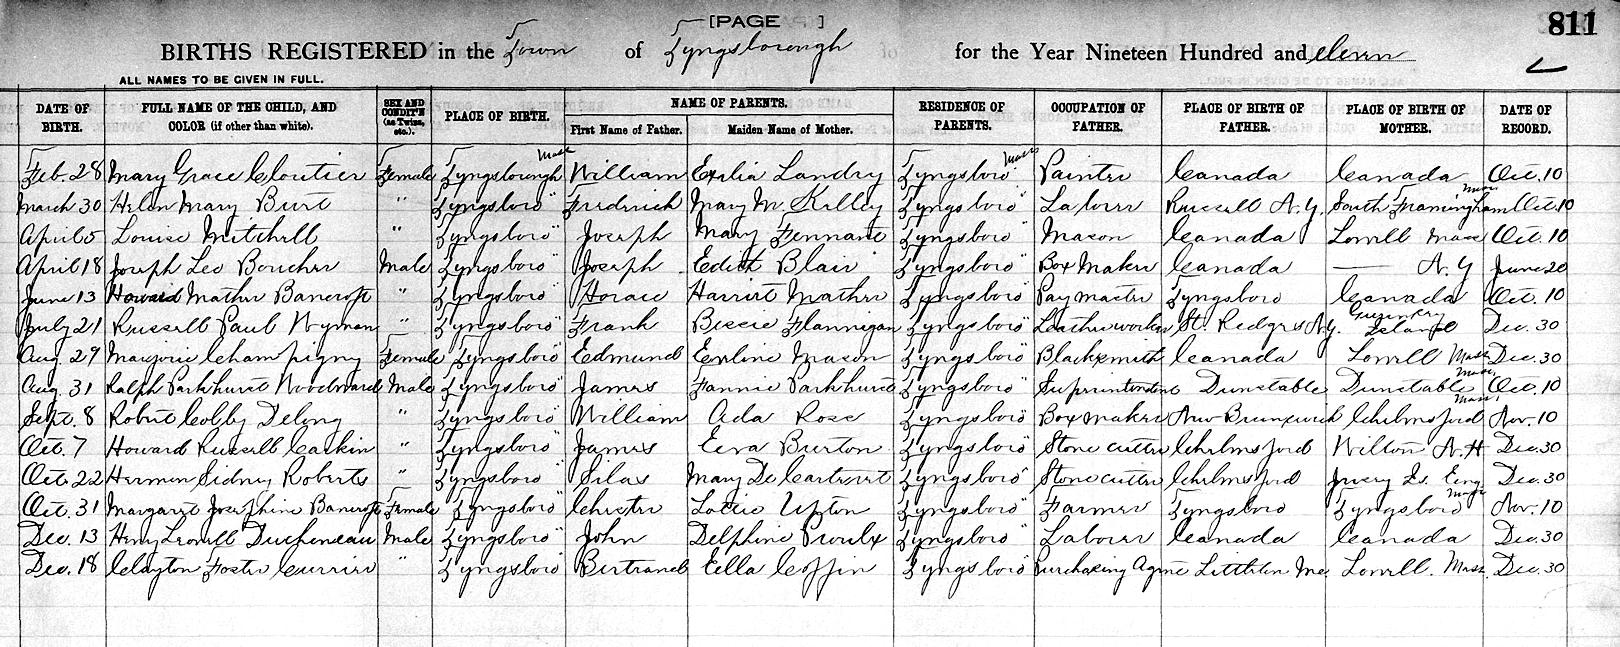 [PAGE ] 811
BIRTHS REGISTERED in the Town of Tyngsborough for the Year Nineteen Hundred and eleven
ALL NAMES TO BE GIVEN IN FULL.
DATE OF BIRTH. FULL NAME OF THE CHILD, AND COLOR (if other than white). SEX AND CONDIT'N (as Twins, etc.). PLACE OF BIRTH. NAME OF PARENTS. First Name of Father. Maiden Name of Mother. RESIDENCE OF PARENTS. OCCUPATION OF FATHER. PLACE OF BIRTH OF FATHER. PLACE OF BIRTH OF MOTHER. DATE OF RECORD.
Feb. 28 Mary Grace Cloutier Female Tyngsborough Mass William Landry Tyngsboro Mass Painter Canada Canada Oct. 10
March 30 Helen Mary Burt " Tyngsboro " Fredrick Mary M. Kelley Tyngsboro " Laborer Russell N.Y. South Framingham Mass Oct. 10
April 5 Louise Mitchell " Tyngsboro " Joseph Mary Tennant Tyngsboro " Mason Canada Lowell Mass Oct. 10
April 18 Joseph Leo Boucher Male Tyngsboro " Joseph Edith Blair Tyngsboro " Box Maker Canada — N.Y June 20
June 13 Howard Mather Bancroft " Tyngsboro " Horace Harriet Mather Tyngsboro " Pay master Tyngsboro Canada Oct. 10
July 21 Russell Paul Wyman " Tyngsboro " Frank Bessie Flannigan Tyngsboro " Leatherworker St. N.Y. Guernsey Island Dec. 30
Aug. 29 Marjorie Champigny Female Tyngsboro " Edmund Emline Mason Tyngsboro " Blacksmith Canada Lowell Mass Dec. 30
Aug. 31 Ralph Parkhurst Woodward Male Tyngsboro " James Fannie Parkhurst Tyngsboro " Suprintendent Dunstable Dunstable Mass. Oct. 10
Sept. 8 Robert Colby Delong " Tyngsboro " William Ada Rose Tyngsboro " Box maker New Brunswick Chelmsford Mass. Nov. 10
Oct. 7 Howard Russell Larkin " Tyngsboro " James Eva Burton Tyngsboro " Stone cutter Chelmsford Wilton N.H Dec. 30
Oct. 22 Hermon Sidney Roberts " Tyngsboro " Silas Mary De Carteret Tyngsboro " Stone cutter Chelmsford Jersey Is. Eng. Dec. 30
Oct. 31 Margaret Josephine Bancroft Female Tyngsboro " Chester Lottie Upton Tyngsboro " Farmer Tyngsboro Tyngsboro Mass Nov. 10
Dec. 13 Henry Leowell Duchineau Male Tyngsboro " John Delphine Proulx Tyngsboro " Laborer Canada Canada Dec. 30
Dec. 18 Clayton Foster Currier " Tyngsboro " Bertrand Ella Coffin Tyngsboro " Purchasing Agent Littleton Me. Lowell. Mass. Dec. 30